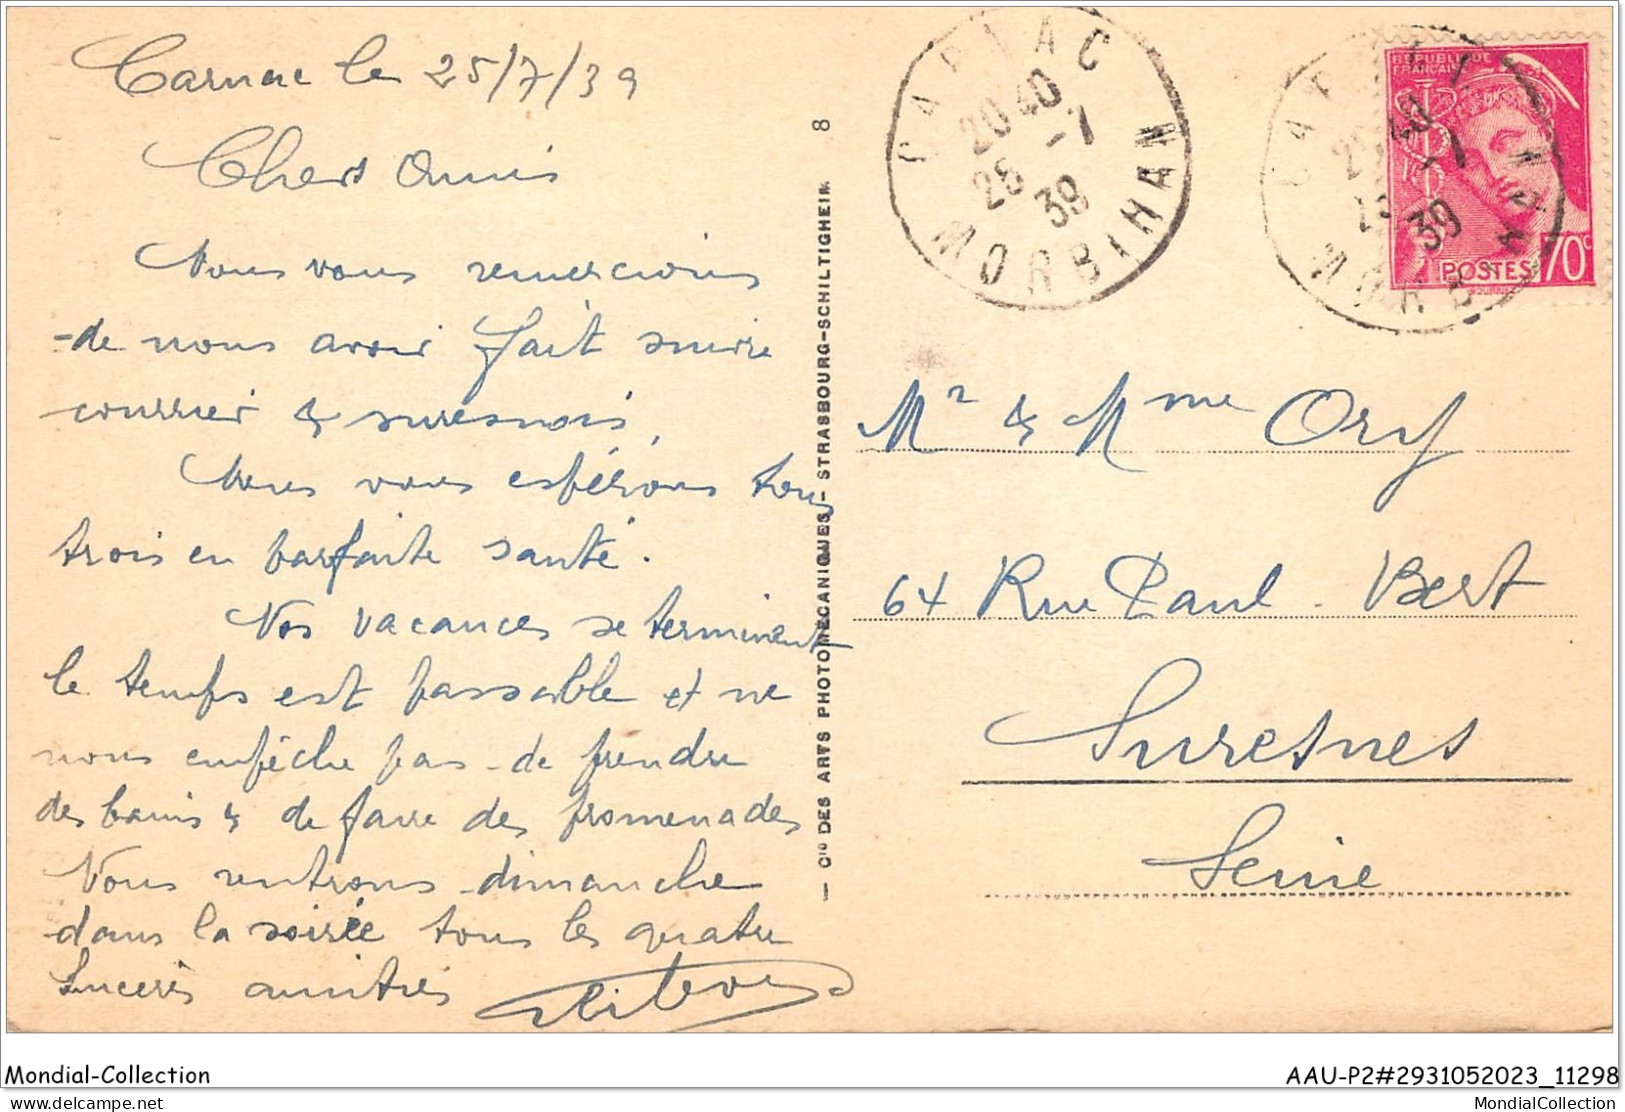 Carnac le 25/7/39
Chers Amis
Nous vous remercions
de nous avoir fait suivre
courrier & suresnois.
Nous vous espérons tous
trois en parfaite santé.
Nos vacances se terminent
le temps est passable et ne
nous empêche pas de prendre
des bains & de faire des promenades
Nous rentrons dimanche
dans la soirée tous les quatre
Sincères amitiés
8
— Cie DES ARTS PHOTOMECANIQUES — STRASBOURG-SCHILTIGHEIM
CARNAC
20 40
25 -7
39
MORBIHAN
CARNAC
20 40
25 -7
39
MORBIHAN
REPUBLIQUE
FRANCAISE
POSTES 70c
Mr & Mme Ory
64 Rue Paul Bert
Suresnes
Seine
Mondial-Collection
AAU-P2#2931052023_11298
delcampe.net
MondialCollection